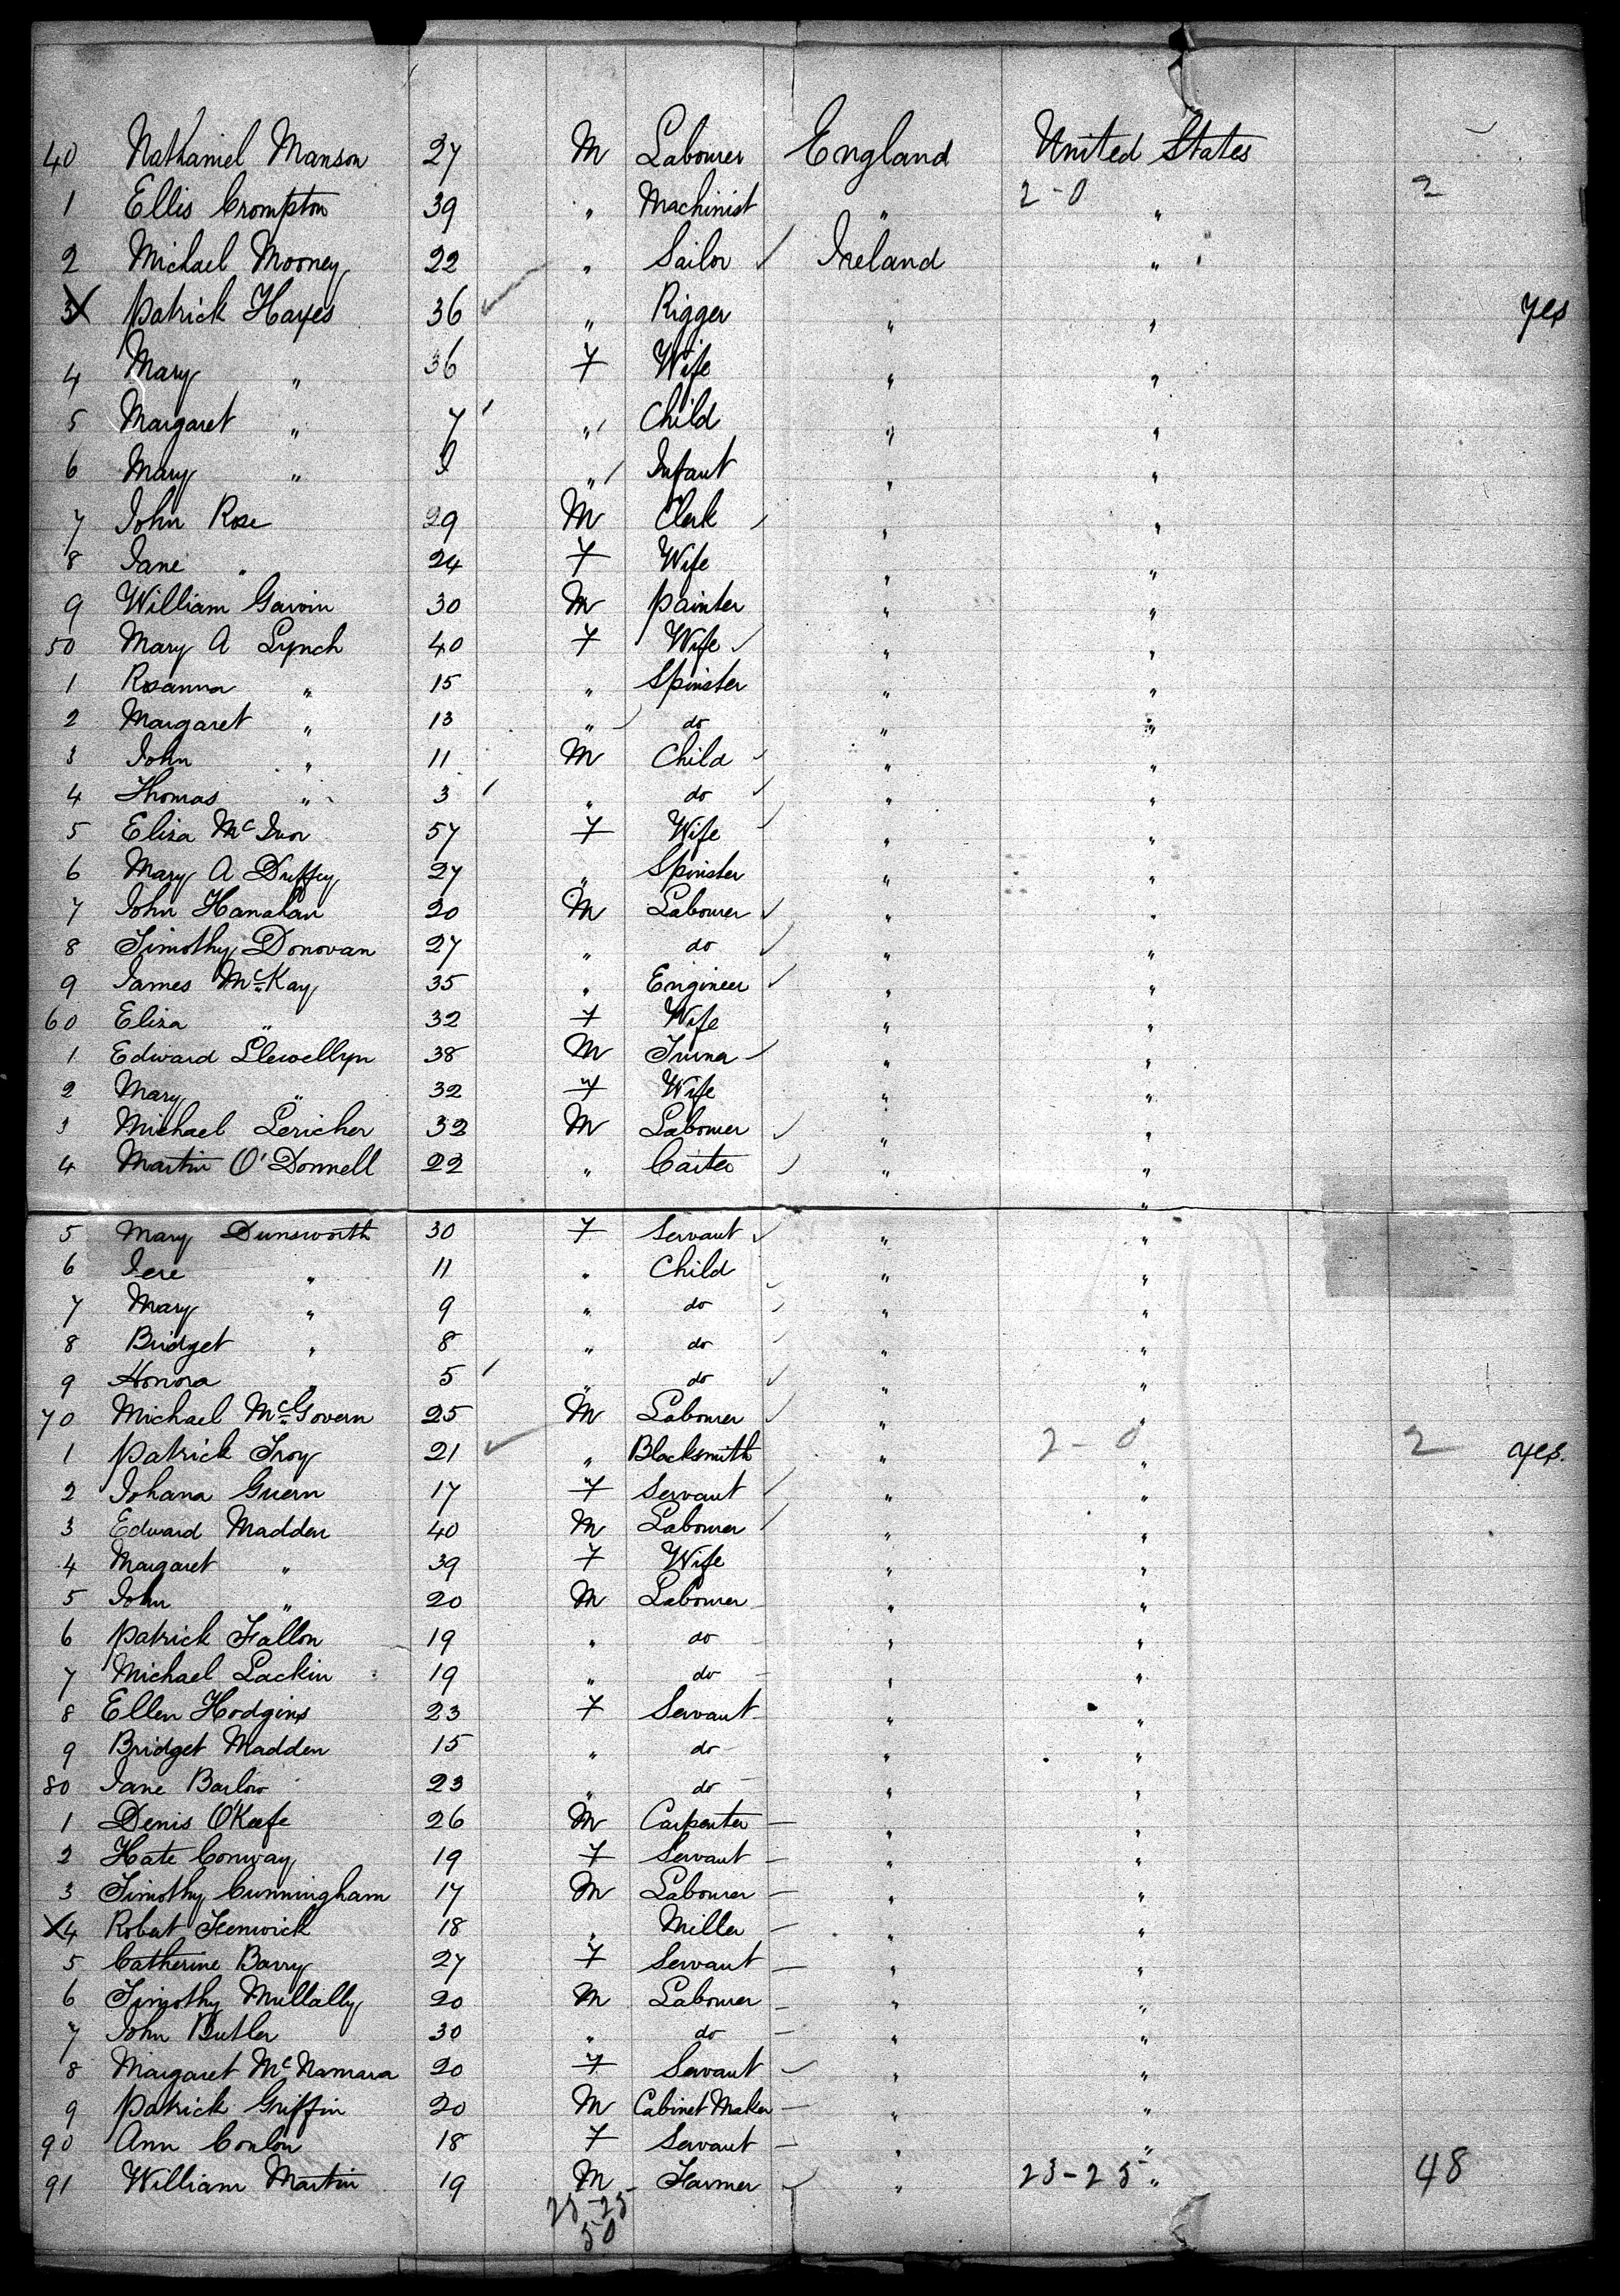 40 Nathaniel Manson 27 M Labourer England United States
1 Ellis Crompton 39 " Machinist " 2-0 " 2
2 Michael Mooney 22 " Sailor Ireland "
3 Patrick Hayes 36 " Rigger " " yes
4 Mary " 36 F Wife " "
5 Margaret " 7 " Child " "
6 Mary " I " Infant " "
7 John Rose 29 M Clerk " "
8 Jane " 24 F Wife " "
9 William Garvin 30 M Painter " "
50 Mary A Lynch 40 F Wife " "
1 Rosanna " 15 " Spinster " "
2 Margaret " 13 " do " "
3 John " 11 M Child " "
4 Thomas " 3 " do " "
5 Eliza McIvor 57 F Wife " "
6 Mary A Duffey 27 " Spinster " "
7 John Hanahan 20 M Labourer " "
8 Timothy Donovan 27 " do " "
9 James McKay 35 " Engineer " "
60 Eliza " 32 F Wife " "
1 Edward Llewellyn 38 M " "
2 Mary " 32 F Wife " "
3 Michael Lericher 32 M Labourer " "
4 Martin O'Donnell 22 " Carter " "
"
5 Mary Dunsworth 30 F Servant " "
6 Jere " 11 " Child " "
7 Mary " 9 " do " "
8 Bridget " 8 " do " "
9 Honora " 5 " do " "
70 Michael McGovern 25 M Labourer " "
1 Patrick Troy 21 " Blacksmith " 2-0 " 2 yes.
2 Johana Guern 17 F Servant " "
3 Edward Madden 40 M Labourer " "
4 Margaret " 39 F Wife " "
5 John " 20 M Labourer " "
6 Patrick Fallon 19 " do " "
7 Michael Lackin 19 " do " "
8 Ellen Hodgins 23 F Servant " "
9 Bridget Madden 15 " do " "
80 Jane Barlow 23 " do " "
1 Denis O'Keefe 26 M Carpenter " "
2 Kate Conway 19 F Servant " "
3 Timothy Cunningham 17 M Labourer " "
X4 Robert Fenwick 18 " Miller " "
5 Catherine Barry 27 F Servant " "
6 Timothy Mullally 20 M Labourer " "
7 John Butler 30 " do " "
8 Margaret McNamara 20 F Servant " "
9 Patrick Griffin 20 M Cabinet Maker " "
90 Ann Conlon 18 F Servant " "
91 William Martin 19 M Farmer " 23-25 " 48
25-25
50